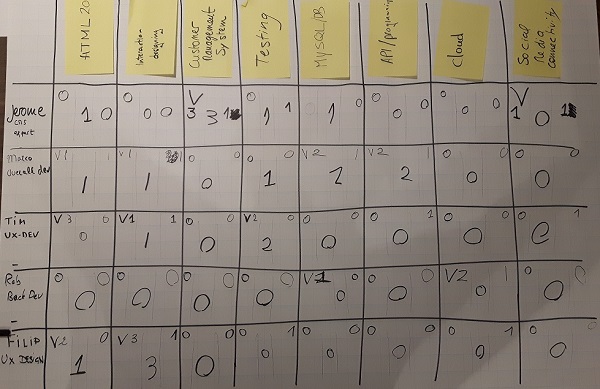 HTML 20
Interaction
designing
Customer
Management
System
Testing
MySQL/DB
API/programming
cloud
Social
Media
connectivity
Jerome
cms
expert
0 1 0
0 0 0
V 3 3 1
0 1 1
0 1 0
0 0 0
0 0 0
V 1 0 1
Marco
Overall dev
V1 1
V1 1
0 0 0
0 1 0
V2 1 2
V2 1 2
0 0 0
0 0 0
Tim
UX-DEV
V3 0 0
V1 1 1
0 0 0
V2 0 2
0 0 0
0 1 0
0 0 0
0 1
Rob
Back Dev
0 0 0
0 0 0
0 0 0
0 0 0
V1 0 0
0 0 0
V2 1 0
0 0 0
FILIP
UX DESIGN
V2 0 1
V3 1 3
0 0 0
0 1 0
0 0 0
0 0 0
0 1 0
0 0 0